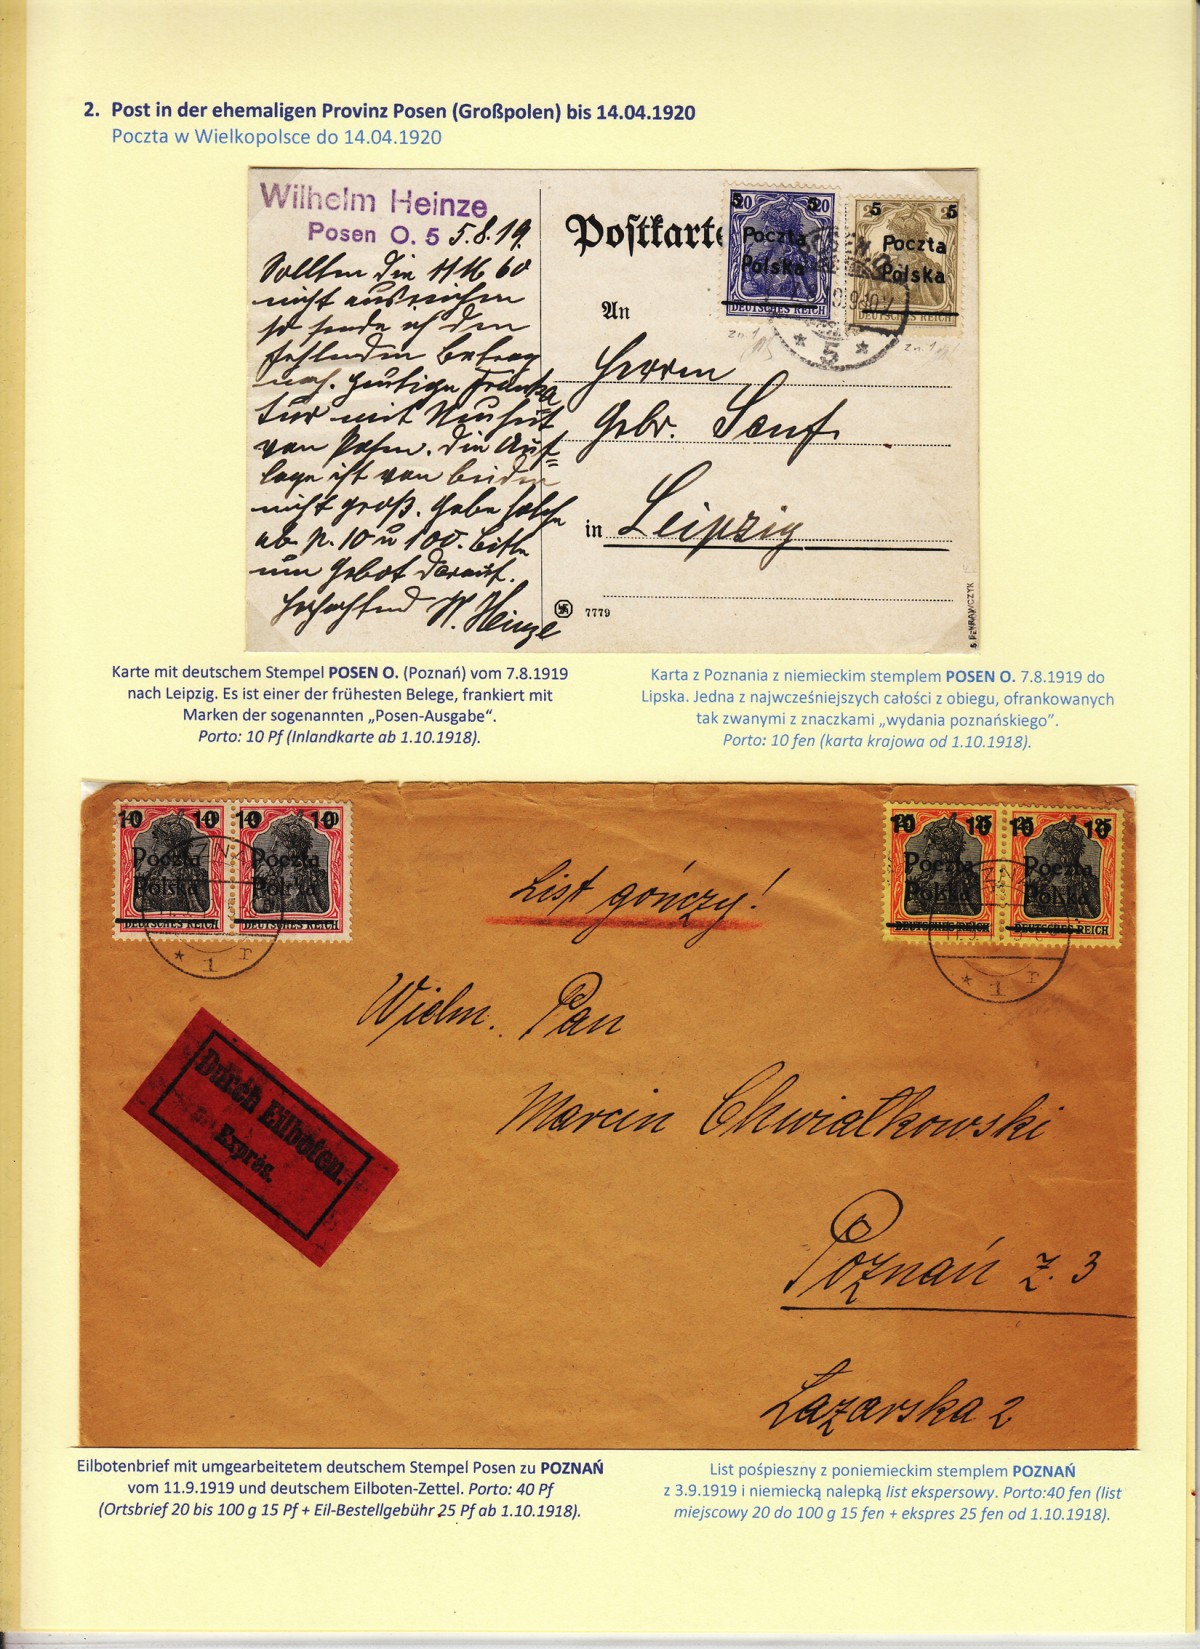 2. Post in der ehemaligen Provinz Posen (Großpolen) bis 14.04.1920
Poczta w Wielkopolsce do 14.04.1920
Wilhelm Heinze
Posen O. 5 5.8.19.
Sollten die M 60
nicht ausreichen
so sende ich den
fehlenden Betrag
nach. Heutige Franka
tur mit Neuheit
von Posen. Die Auf=
lage ist von beiden
nicht groß. Gebe solche
ab p. 10 u 100. Bitte
um Gebot darauf.
Hochachtend W. Heinze
Postkarte
An
Herren
Gebr. Senf
in Leipzig
7779
20 20
5 5
Poczta
Polska
DEUTSCHES REICH
5 5
Poczta
Polska
DEUTSCHES REICH
* 5 *
KRAWCZYK
Karte mit deutschem Stempel POSEN O. (Poznań) vom 7.8.1919
nach Leipzig. Es ist einer der frühesten Belege, frankiert mit
Marken der sogenannten „Posen-Ausgabe“.
Porto: 10 Pf (Inlandkarte ab 1.10.1918).
Karta z Poznania z niemieckim stemplem POSEN O. 7.8.1919 do
Lipska. Jedna z najwcześniejszych całości z obiegu, ofrankowanych
tak zwanymi z znaczkami „wydania poznańskiego”.
Porto: 10 fen (karta krajowa od 1.10.1918).
10 10 10 10
Poczta Poczta
Polska Polska
DEUTSCHES REICH DEUTSCHES REICH
* 1 r
10 10 10 10
Poczta Poczta
Polska Polska
DEUTSCHES REICH DEUTSCHES REICH
* 1 r
List gończy!
Wielm. Pan
Marcin Chwiałkowski
Poznań Z. 3
Łazarska 2
Durch Eilboten.
Exprès.
Eilbotenbrief mit umgearbeitetem deutschem Stempel Posen zu POZNAŃ
vom 11.9.1919 und deutschem Eilboten-Zettel. Porto: 40 Pf
(Ortsbrief 20 bis 100 g 15 Pf + Eil-Bestellgebühr 25 Pf ab 1.10.1918).
List pośpieszny z poniemieckim stemplem POZNAŃ
z 3.9.1919 i niemiecką nalepką list ekspersowy. Porto:40 fen (list
miejscowy 20 do 100 g 15 fen + ekspres 25 fen od 1.10.1918).